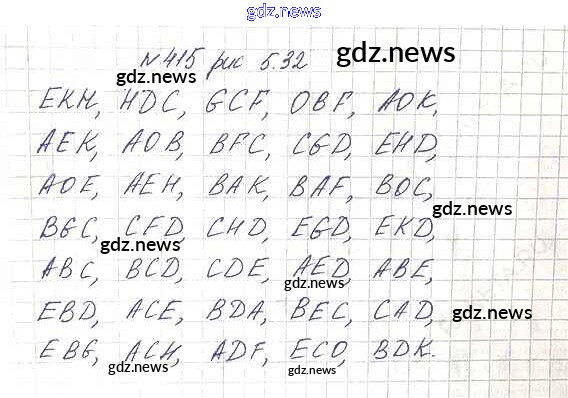 gdz.news
№415 рис 5.32 gdz.news
gdz.news
EKH, HDC, GCF, OBF, AOK,
AEK, AOB, BFC, CGD, EHD,
AOE, AEH, BAK, BAF, BOC,
gdz.news
BGC, CFD, CHD, EGD, EKD,
gdz.news
ABC, BCD, CDE, AED, ABE,
gdz.news
EBD, ACE, BDA, BEC, CAD,
gdz.news
EBG, ACH, ADF, ECO, BDK.
gdz.news gdz.news